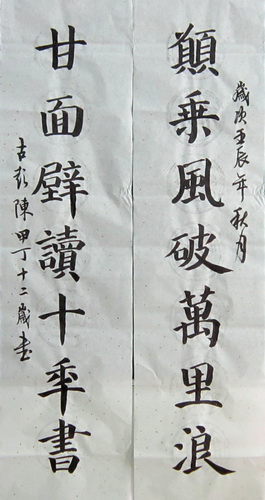 歲次壬辰年秋月
願乘風破萬里浪
甘面壁讀十年書
古彭陳甲丁十二歲書